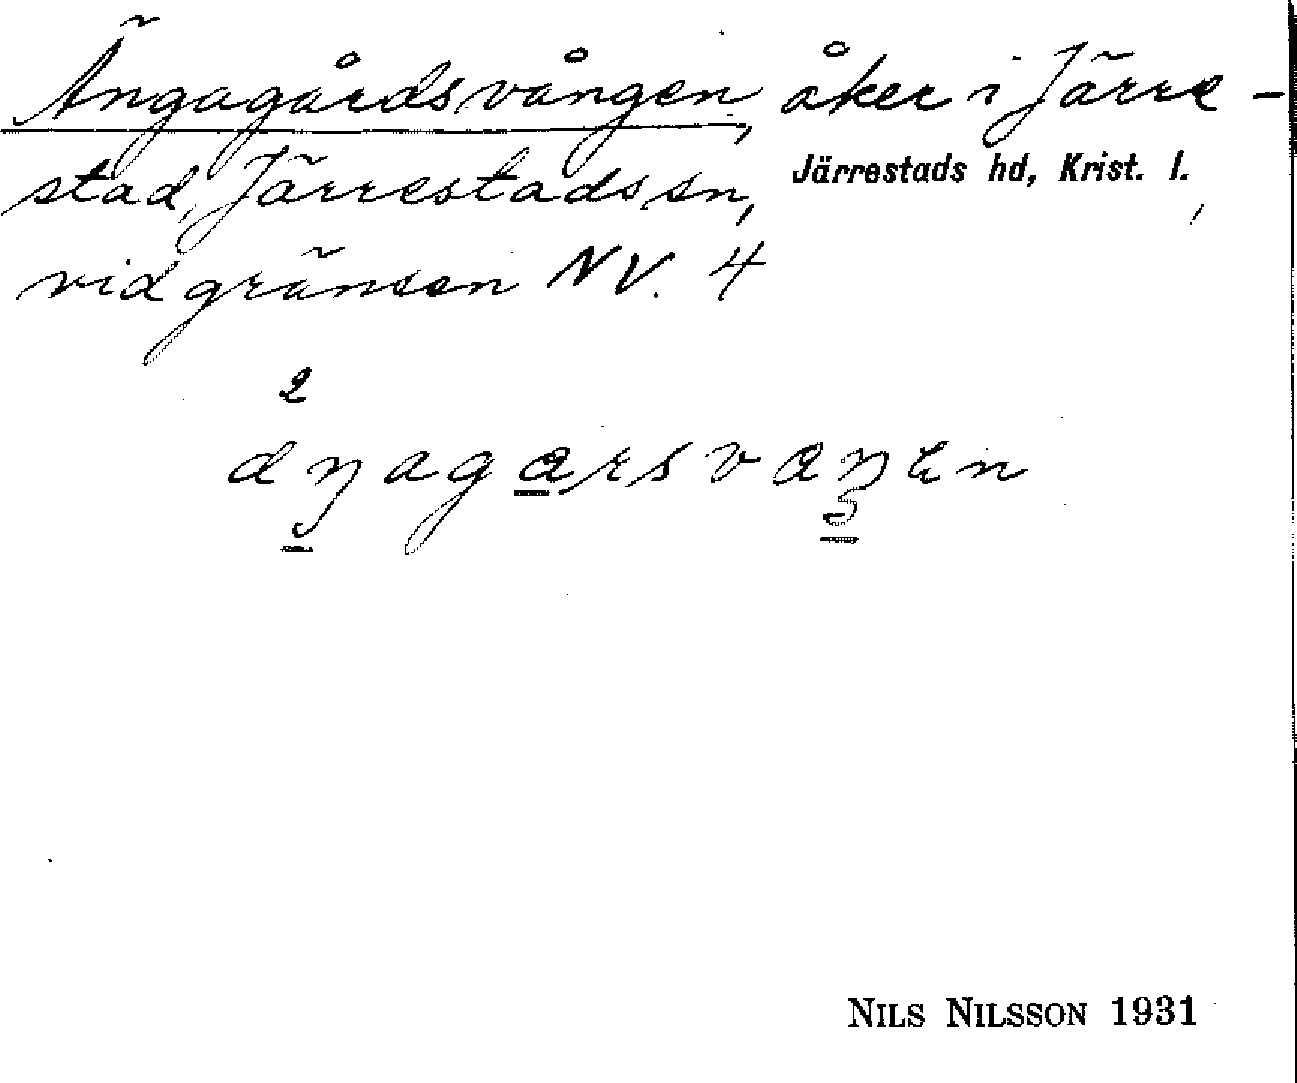 Ängagårdsvången, åker i Järre-
stad, Järrestads sn, Järrestads hd, Krist. l.,
vid gränsen NV. 4
2
aŋagarsvaŋen
NILS NILSSON 1931